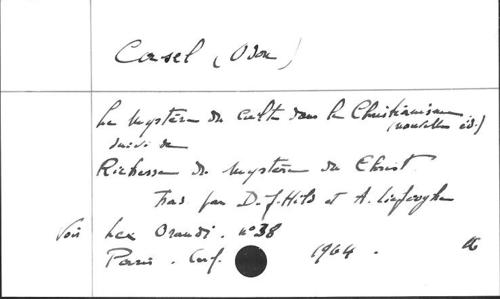 Casel (Odon)
Le Mystère du culte dans le Christianisme
(nouvelle éd.)
suivi de
Richesse du Mystère du Christ.
Trad par D. J. Hild et A. Liefooghe
Voir Lex Orandi. n° 38
Paris. Cerf. 1964.